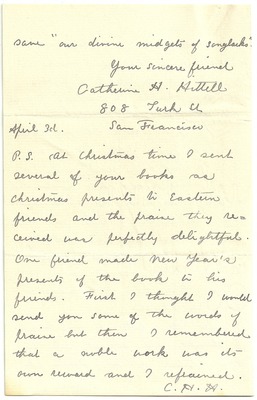 save "our divine midgets of songlacks".
Your sincere friend
Catherine H. Hittell
808 Turk St
April 3d. San Francisco
P.S. At Christmas time I sent
several of your books as
Christmas presents to Eastern
friends and the praise they re-
ceived was perfectly delightful.
One friend made New Year's
presents of the book to his
friends. First I thought I would
send you some of the words of
praise but then I remembered
that a noble work was its
own reward and I refrained.
C. H. H.